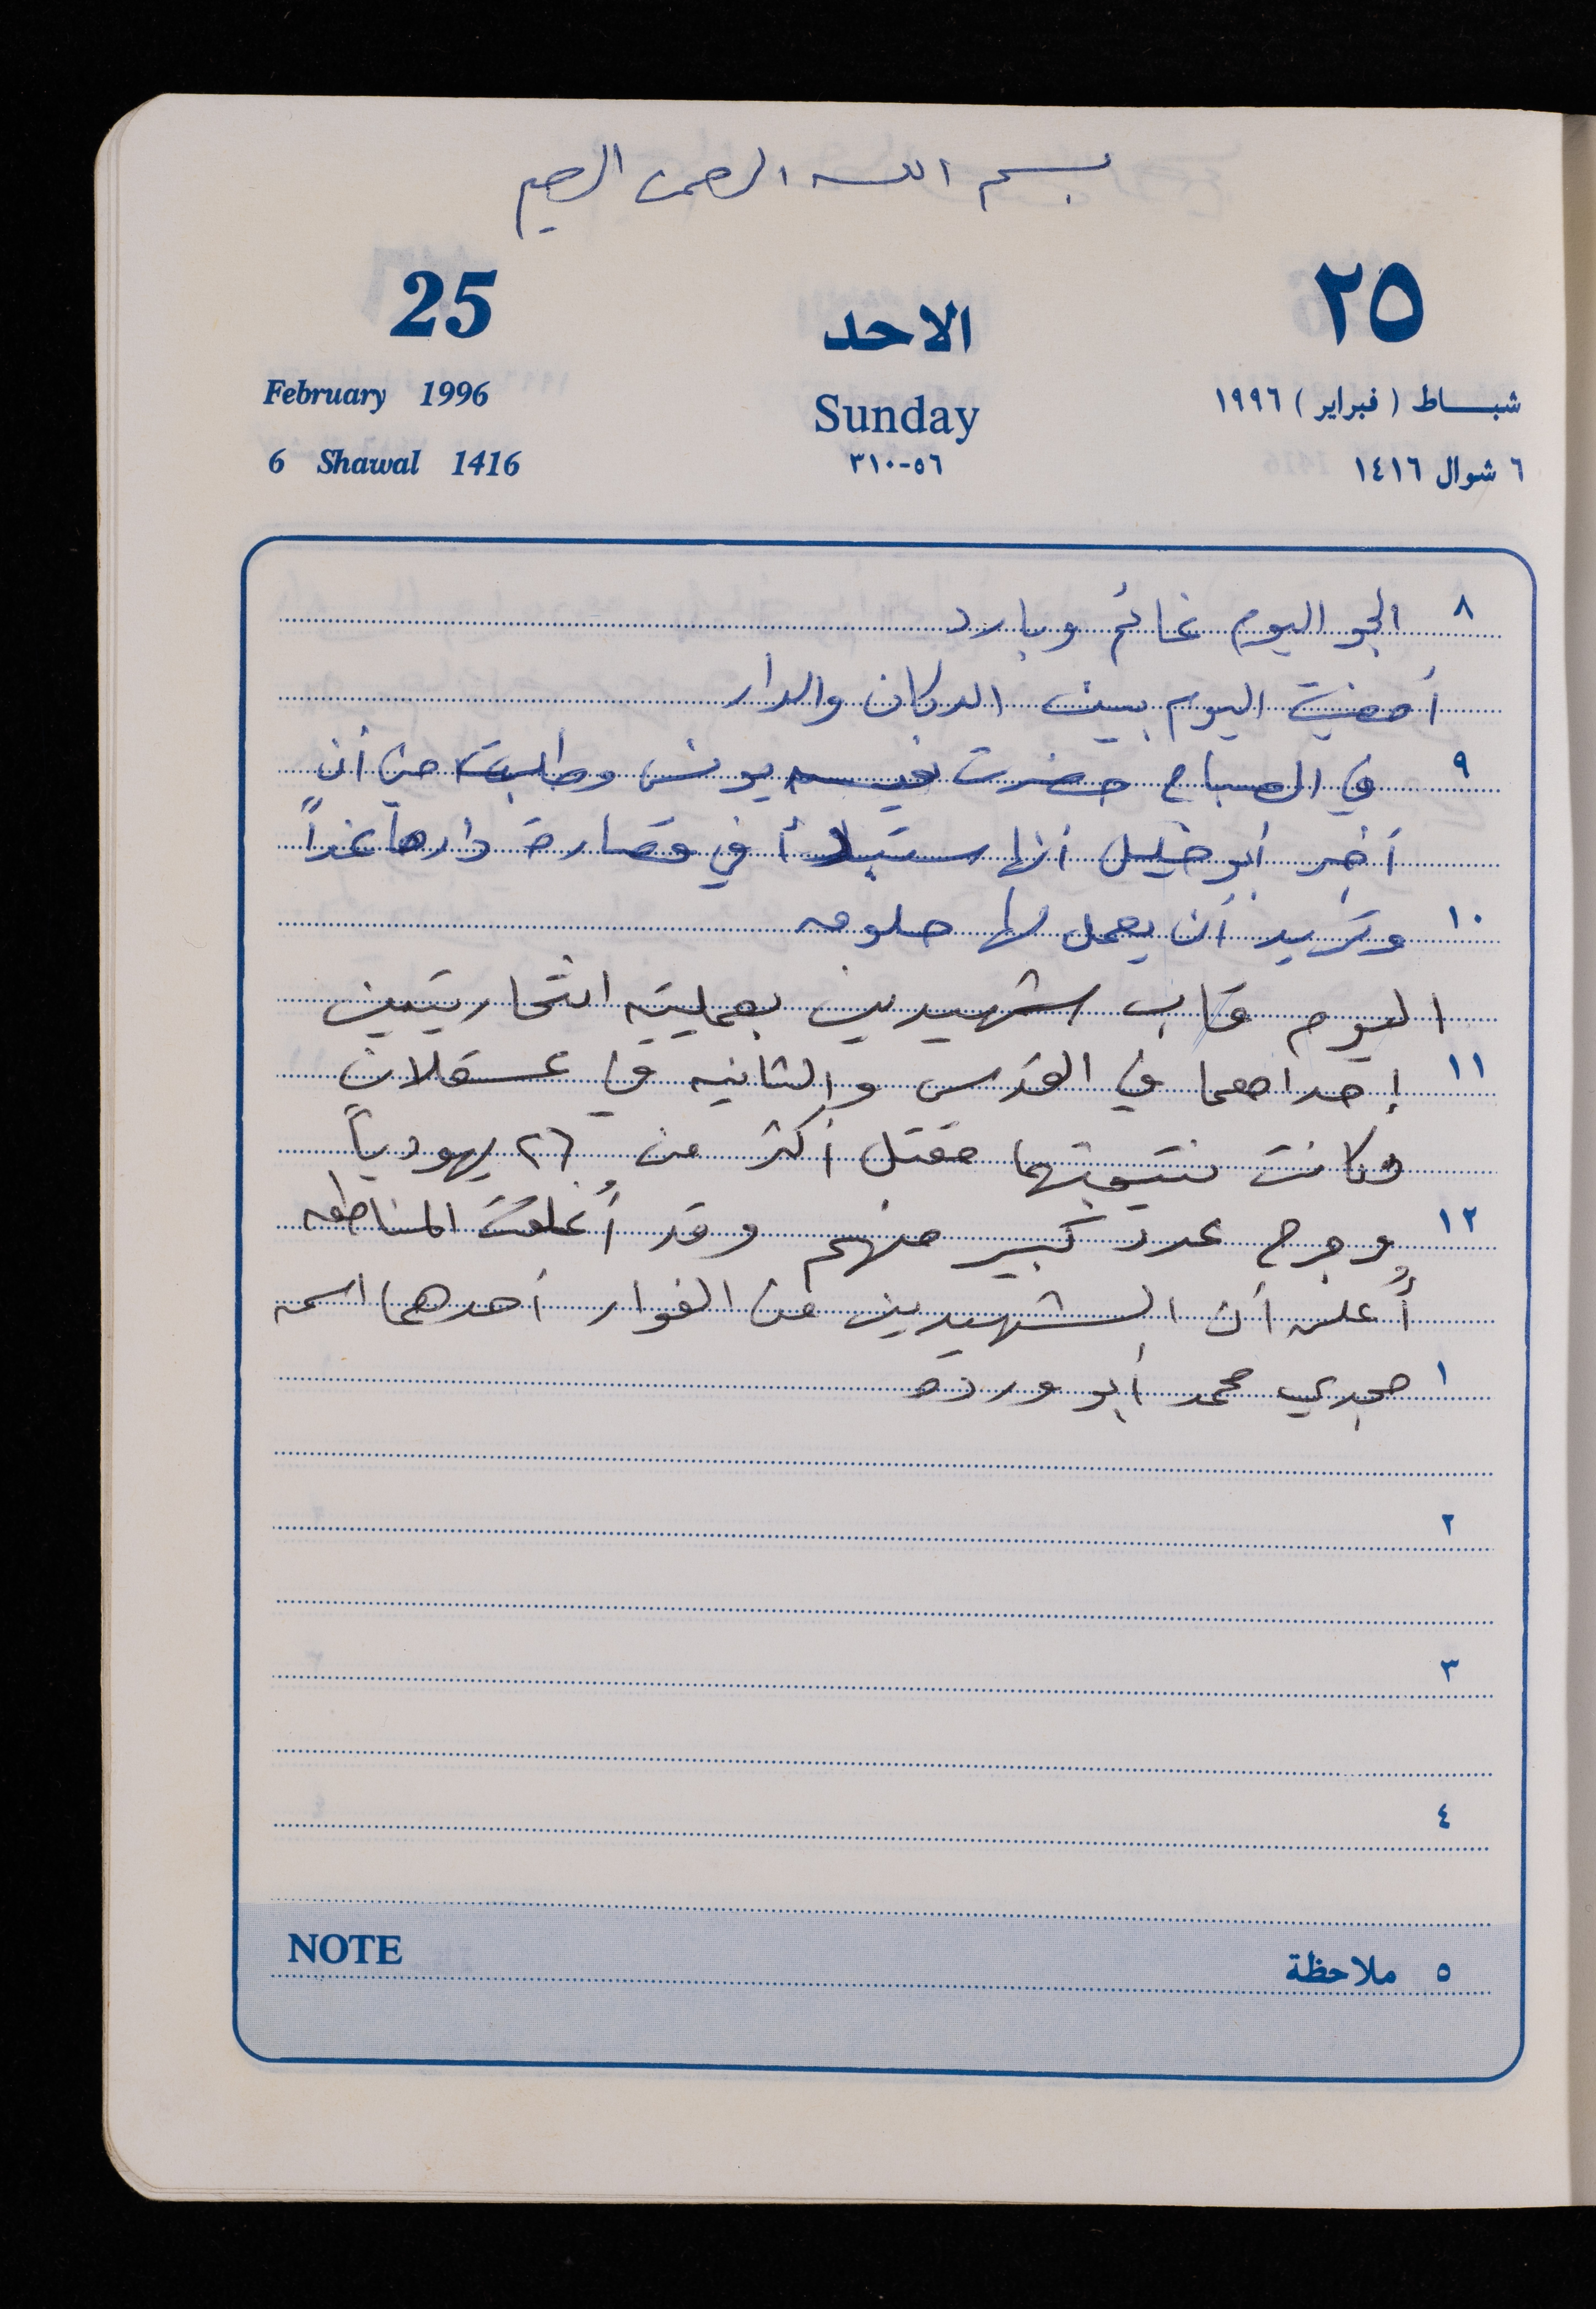 بسم الله الرحمن الرحيم
25 الاحد ٢٥
February 1996 Sunday شباط ( فبراير ) ١٩٩٦
6 Shawal 1416 ٥٦-٣١٠ ٦ شوال ١٤١٦
٨ الجو اليوم غائم وبارد
أمضيت اليوم بين الدكان والدار
٩ في الصباح حضرت يونس وطلبت مني أن
أخبر أبو خليل أنها ستبدأ في قصارة دارها غداً
١٠ وتريد أن يعمل لها
اليوم قاب شهيدين بعمليته انتحاريتين
١١ إحداهما في القدس والثانيه في عسقلان
وكانت نتيجتهما مقتل أكثر من ٢٦ يهودياً
١٢ وجرح عدد كبير منهم وقد أُغلقت المناطق
أُعلن أن الشهيدين من الفوار أحدهما اسمه
١ مجدي محمد أبو ورده
٢
٣
٤
NOTE ٥ ملاحظة